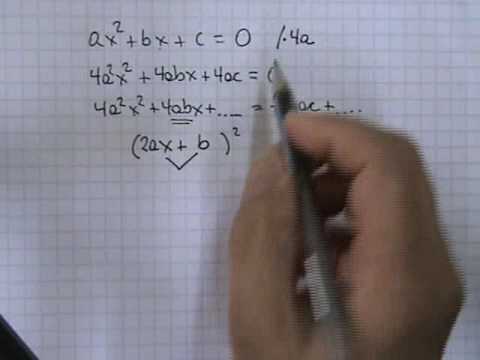 ax² + bx + c = 0 /·4a
4a²x² + 4abx + 4ac =
4a²x² + 4abx + .... = ac + ....
(2ax + b )²